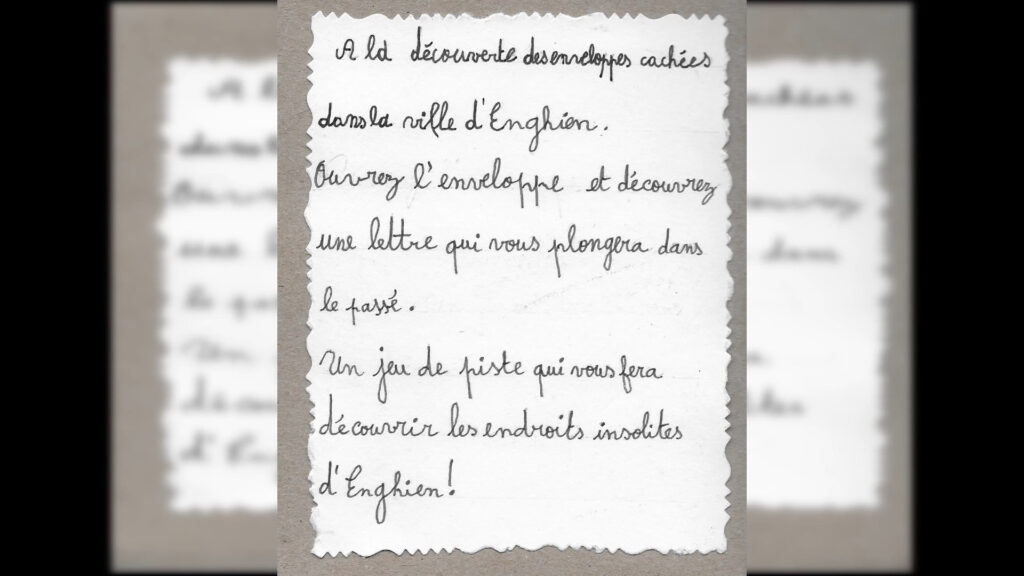 A la découverte des enveloppes cachées
dans la ville d'Enghien.
Ouvrez l'enveloppe et découvrez
une lettre qui vous plongera dans
le passé.
Un jeu de piste qui vous fera
découvrir les endroits insolites
d'Enghien!